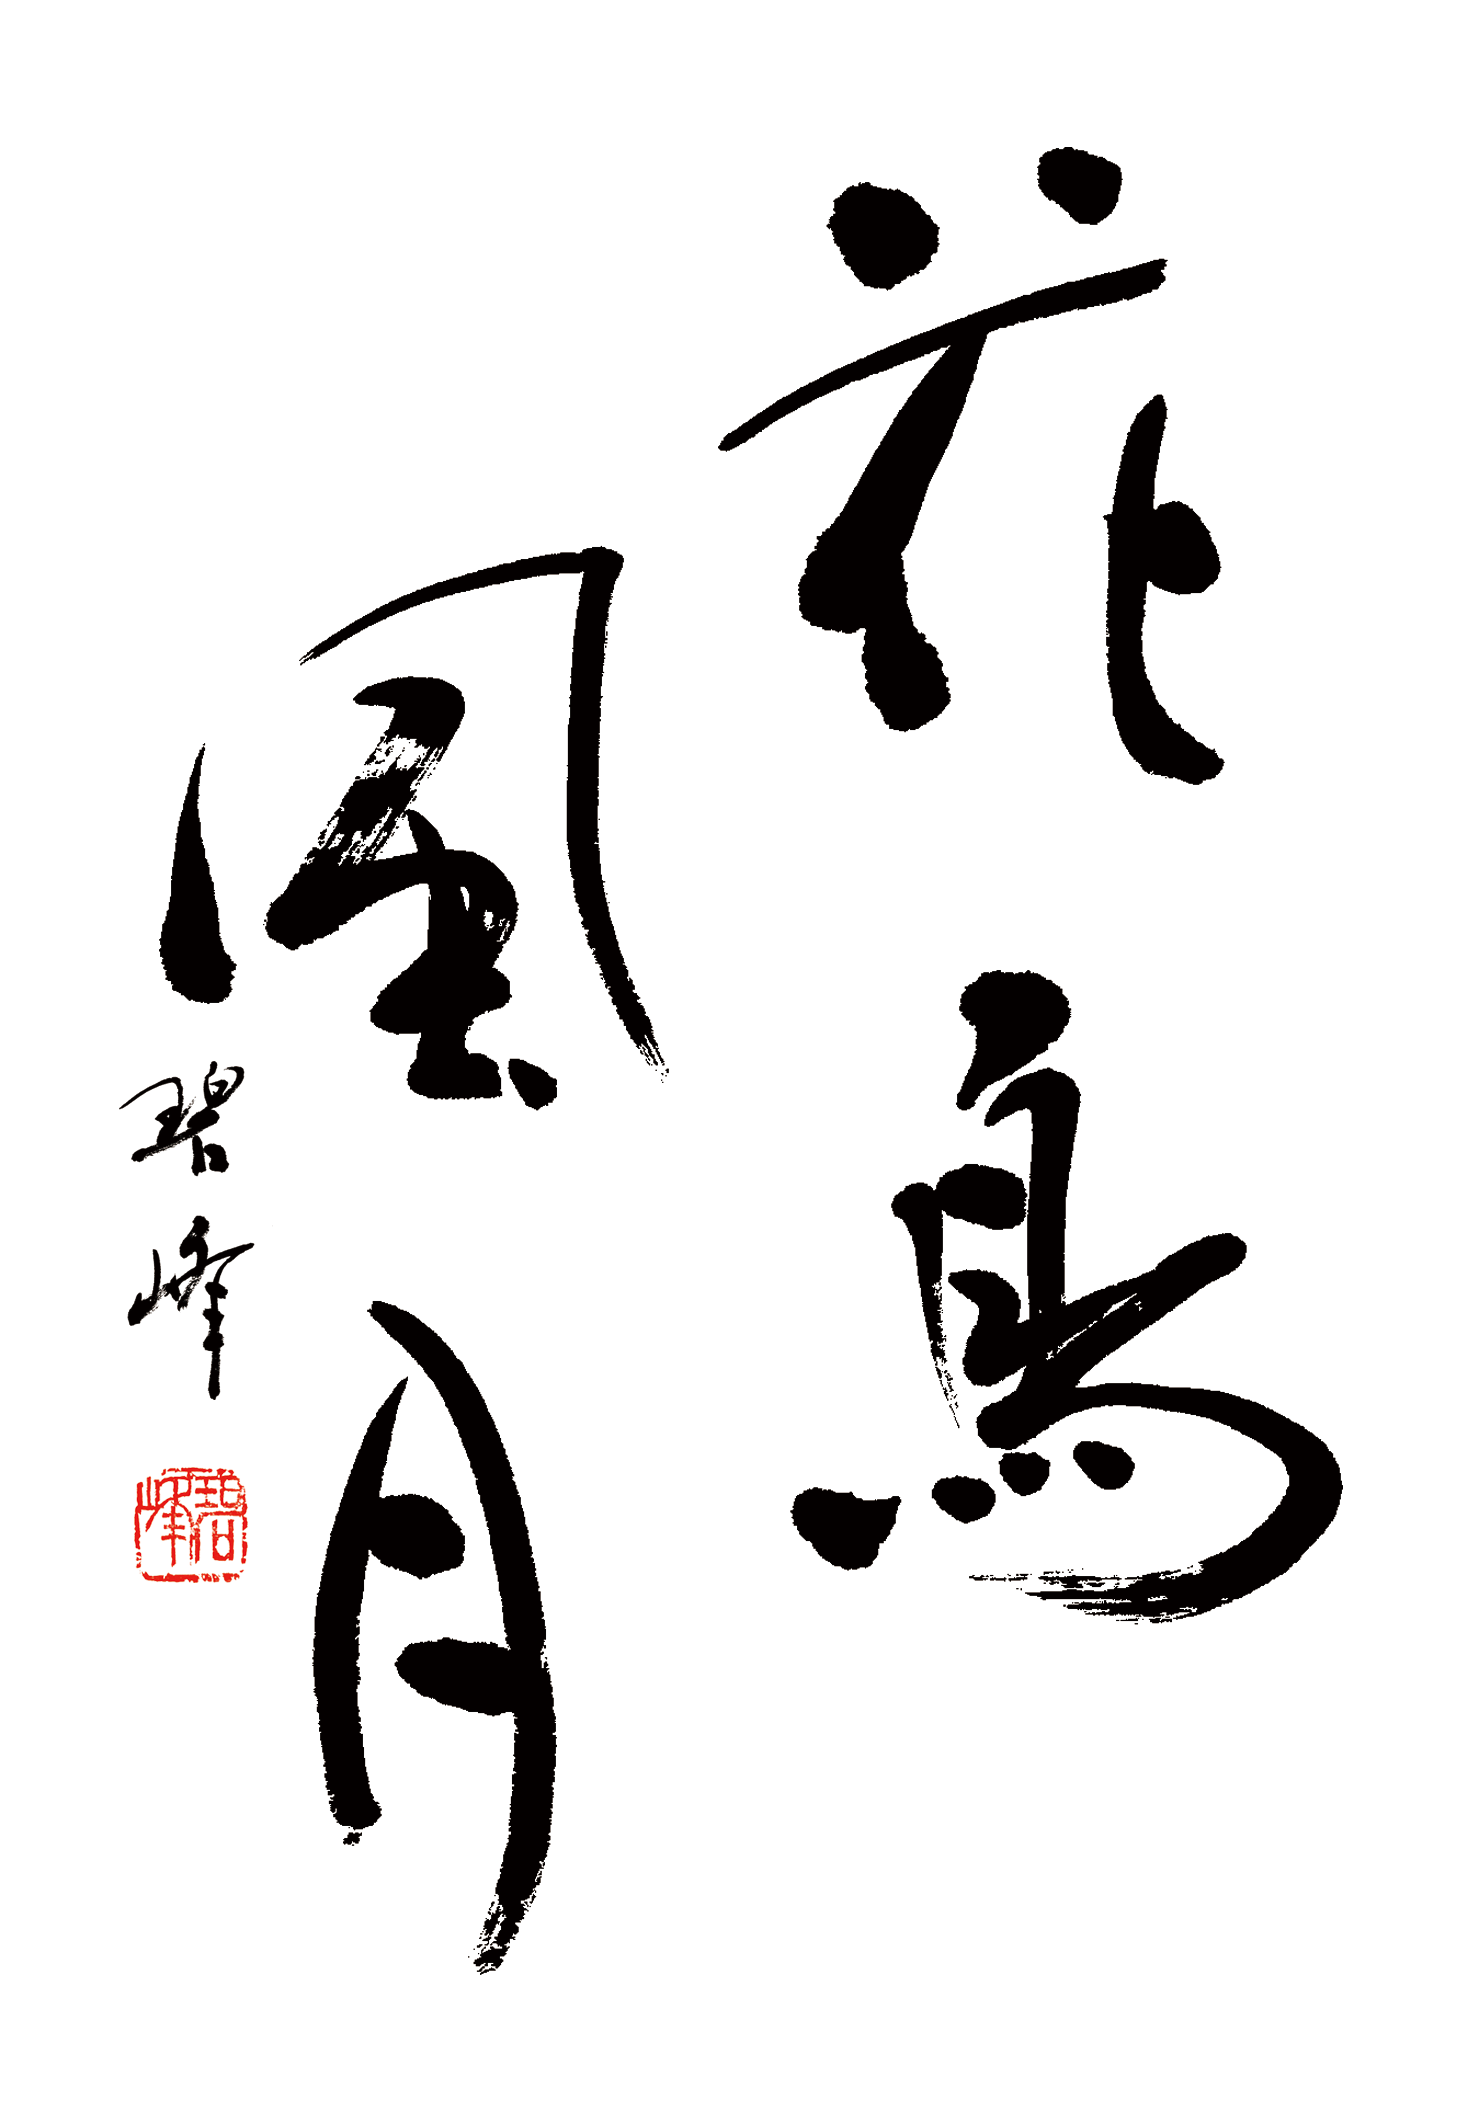 花鳥
風月
碧峰
碧峰